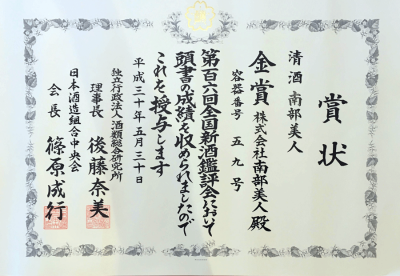 賞状
清酒 南部美人
金賞 株式会社南部美人 殿
容器番号 五九号
第百六回全国新酒鑑評会において
頭書の成績を収められましたので
これを授与します
平成三十年五月三十日
独立行政法人 酒類総合研究所
理事長 後藤奈美
日本酒造組合中央会
会長 篠原成行